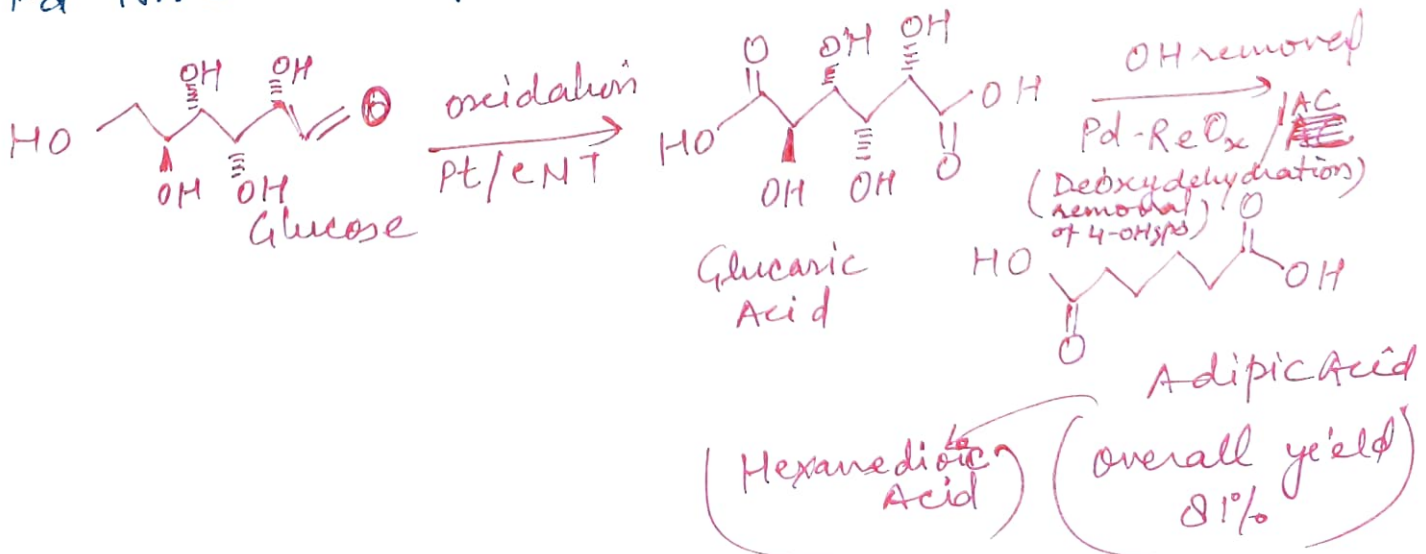 OH OH
HO O
OH OH
Glucose
oxidation
Pt/CNT
O OH OH
OH
HO
OH OH O
Glucaric
Acid
OH removed
Pd-ReOx/AC
(Deoxydehydration)
(removal
of 4-OHgps)
O
HO OH
O
Adipic Acid
(Hexanedioic
Acid)
(overall yield
81%)